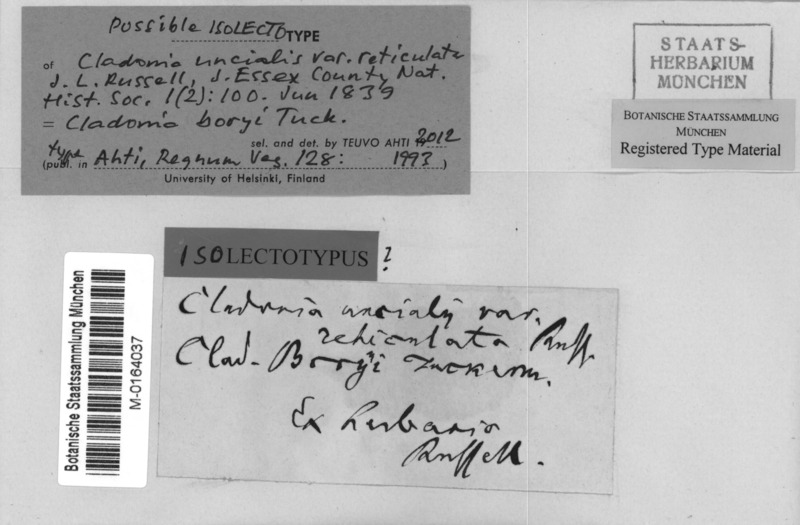 Possible ISOLECTOTYPE
of Cladonia uncialis var. reticulata
J. L. Russell, J. Essex County Nat.
Hist. Soc. 1(2): 100. Jun 1839
= Cladonia boryi Tuck.
sel. and det. by TEUVO AHTI 2012
type
(publ. in Ahti, Regnum Veg. 128: 1993)
University of Helsinki, Finland
STAATS-
HERBARIUM
MÜNCHEN
BOTANISCHE STAATSSAMMLUNG
MÜNCHEN
Registered Type Material
ISOLECTOTYPUS ?
Cladonia uncialis var.
reticulata Russ.
Clad. Boryi Tuckerm.
Ex herbario
Russell.
Botanische Staatssammlung München
M-0164037